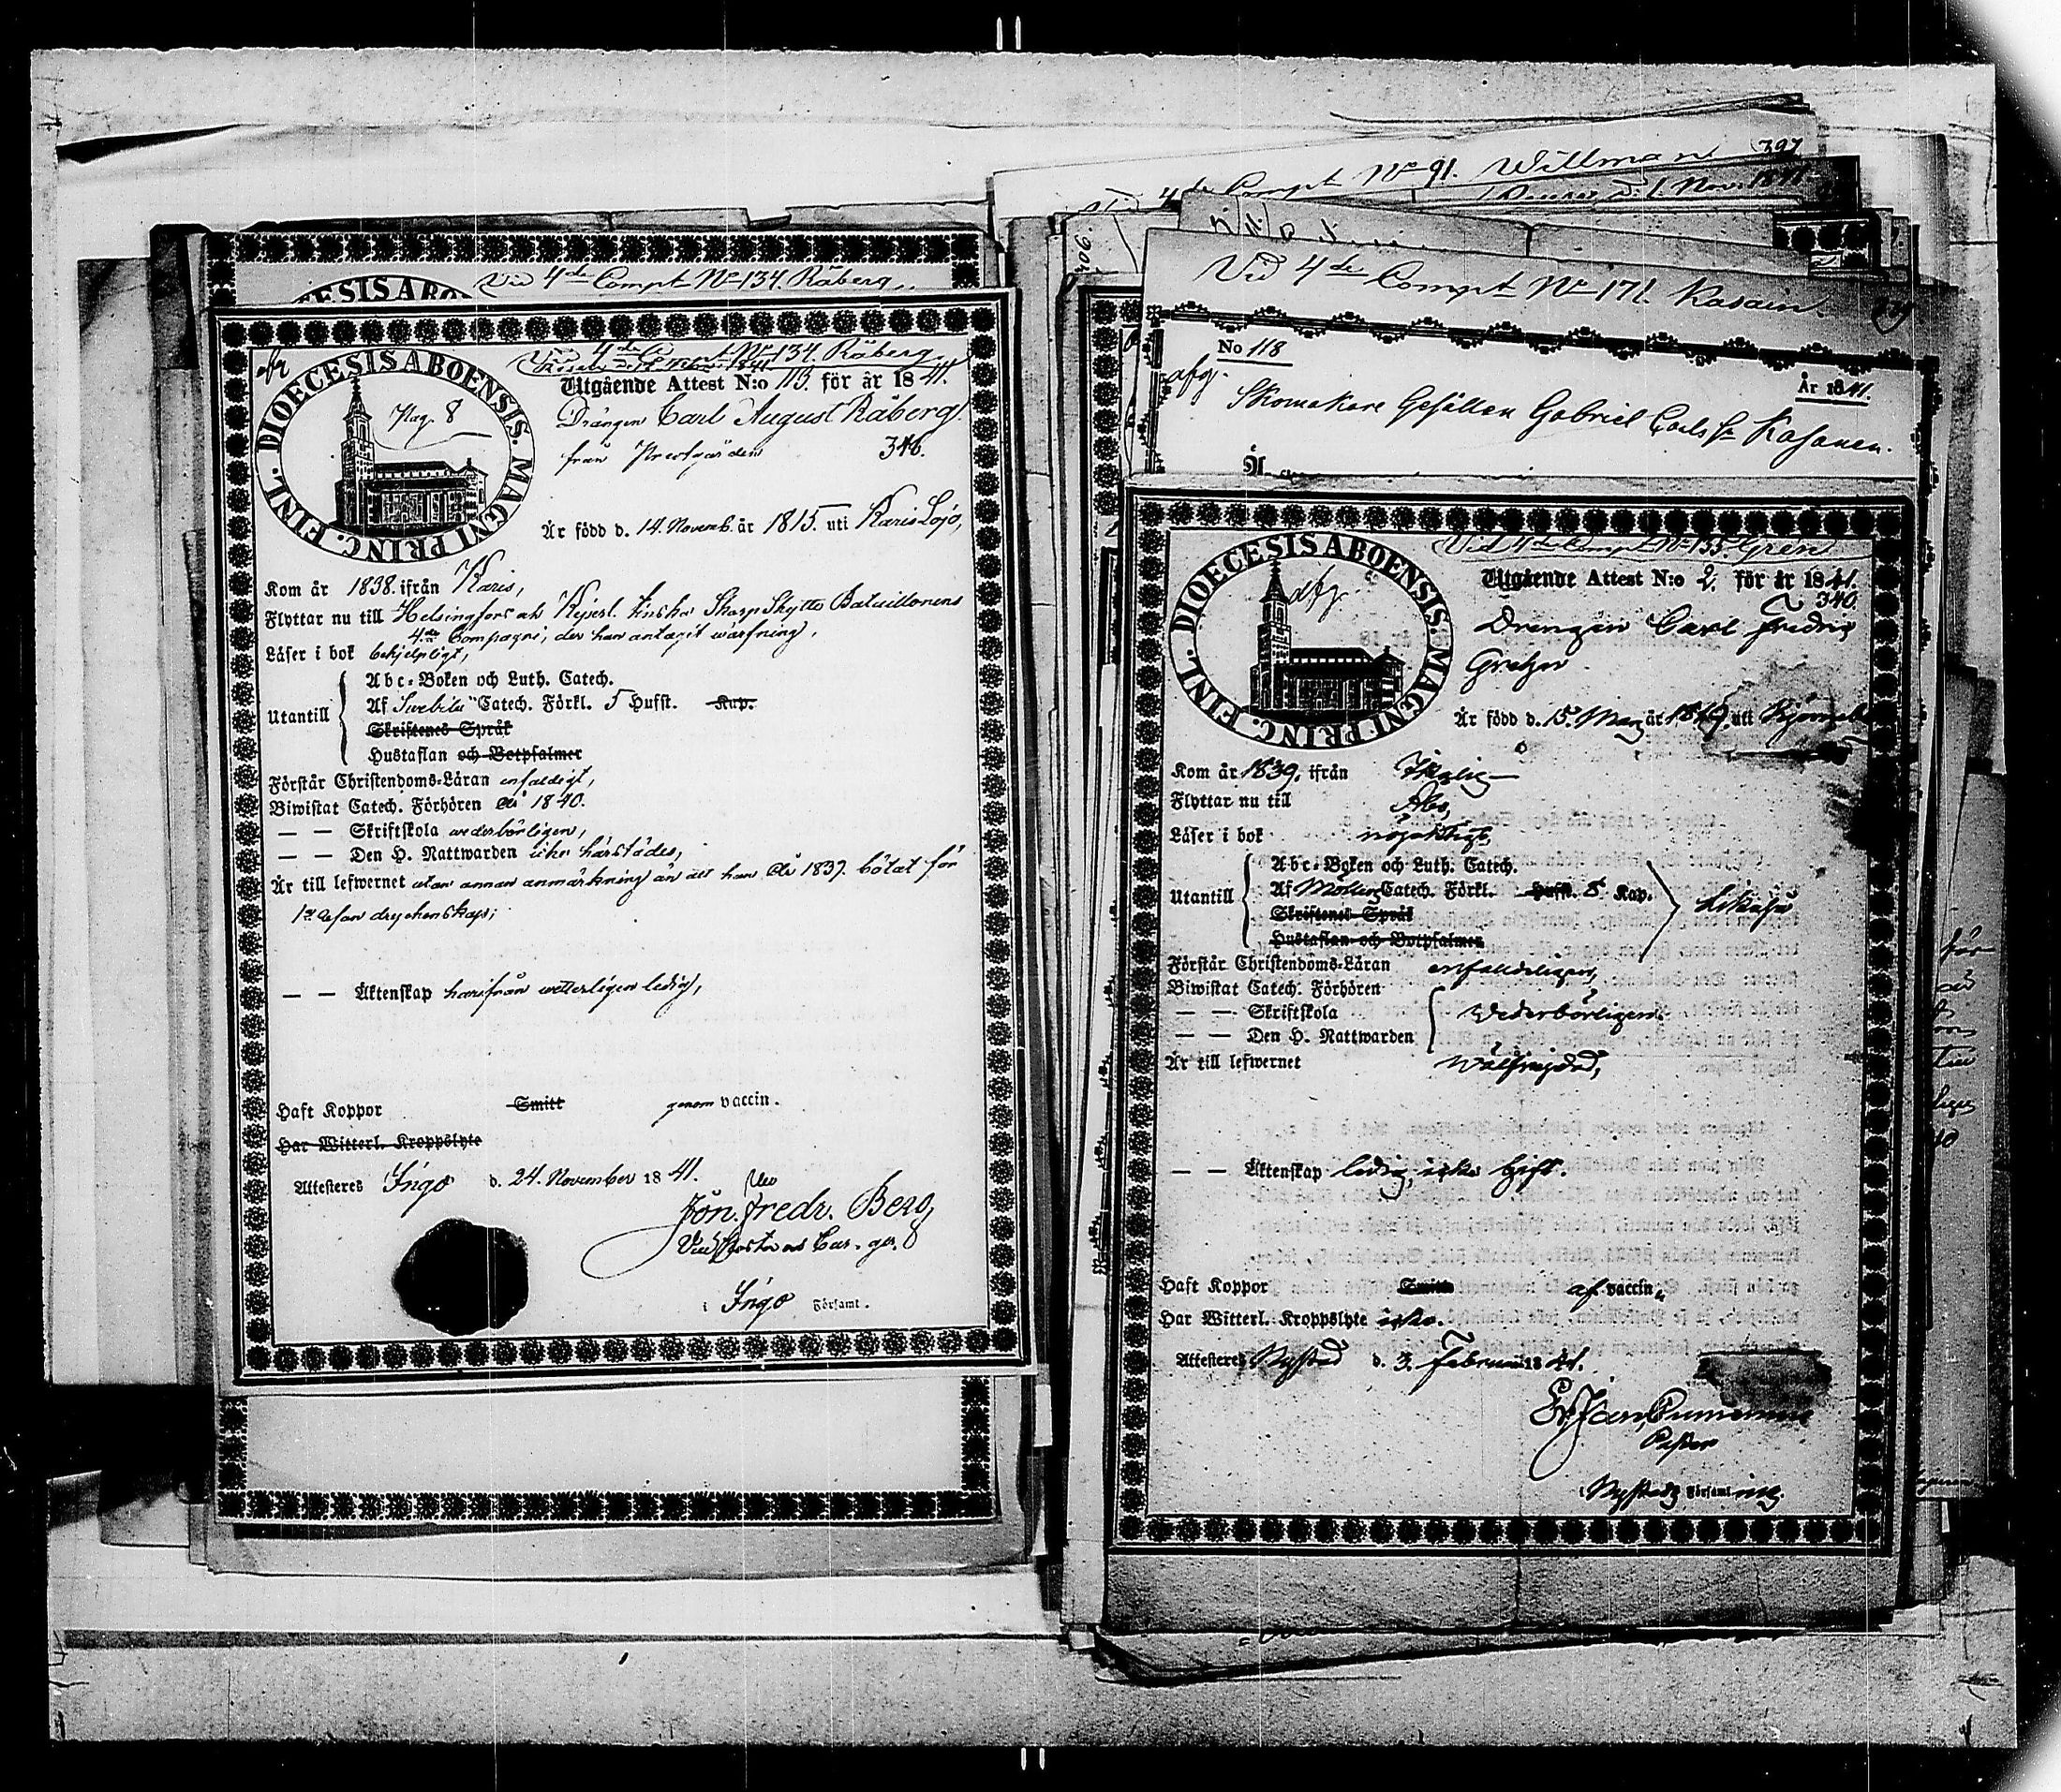 Vid 4de Compt No 134. Råberg
DIOECESIS ABOENSIS. MAGNI PRINC. FINL.
Pag. 8
Vid 4de No 134. Råberg
Utgående Attest N:o 113. för år 1841.
Drängen Carl August Råberg
från Prestgården 346.
Är född d. 14. Novemb. år 1815. uti Karis Lojo,
Kom år 1838. ifrån Karis,
Flyttar nu till Helsingfors och Kejserl. Finska Skarp Skytte Bataillonens
4de Compagni, der han antagit wärfning,
Läser i bok behjelpligt,
Abc-Boken och Luth. Catech.
Utantill Af Svebilii Catech. Förkl. 5 Hufst. Kap.
Skriftenes Språk
Hustaflan och Botpsalmer
Förstår Christendoms-Läran enfaldigt,
Biwistat Catech. Förhören år 1840.
— — Skriftskola wederbörligen,
— — Den H. Nattwarden icke härstädes,
Är till lefwernet utan annan anmärkning än att han år 1837. bötat för
1a resan dryckenskap;
— — Äktenskap härifrån witterligen ledig,
Haft Koppor Smitt genom vaccin.
Har Witterl. Kroppslyte
Attesteras Ingo d. 24. November 1841.
Jon. Fredr. Berg
i Ingo Församl.
Compt No 91. Willman 397
d. 1. Nov. 1841
406.
Vid 4de Compt No 171. Kasain.
No 118
År 1841.
afg.
Skomakare Gesällen Gabriel Carls Sn Kasanen.
Vid 4de Compt No 135. Gren
DIOECESIS ABOENSIS. MAGNI PRINC. FINL.
afg
Utgående Attest N:o 2. för år 1841.
340.
Drengen Carl Fredric
Är född d. 15. May år uti
Kom år 1839. ifrån
Flyttar nu till Åbo,
Läser i bok nöjaktigt,
Abc-Boken och Luth. Catech.
Utantill Af Möllers Catech. Förkl. Hufst. 5 Kap. likaså
Skriftenes Språk
Hustaflan och Botpsalmer
Förstår Christendoms-Läran enfaldeligen,
Biwistat Catech. Förhören
— — Skriftskola Wederbörligen.
— — Den H. Nattwarden
Är till lefwernet Wälfrejdad,
— — Äktenskap ledig, icke gift.
Haft Koppor Smitt af vaccin,
Har Witterl. Kroppslyte icke.
Attesteras Nystad d. 3. Februari 1841.
Pastor
i Nystads Församling